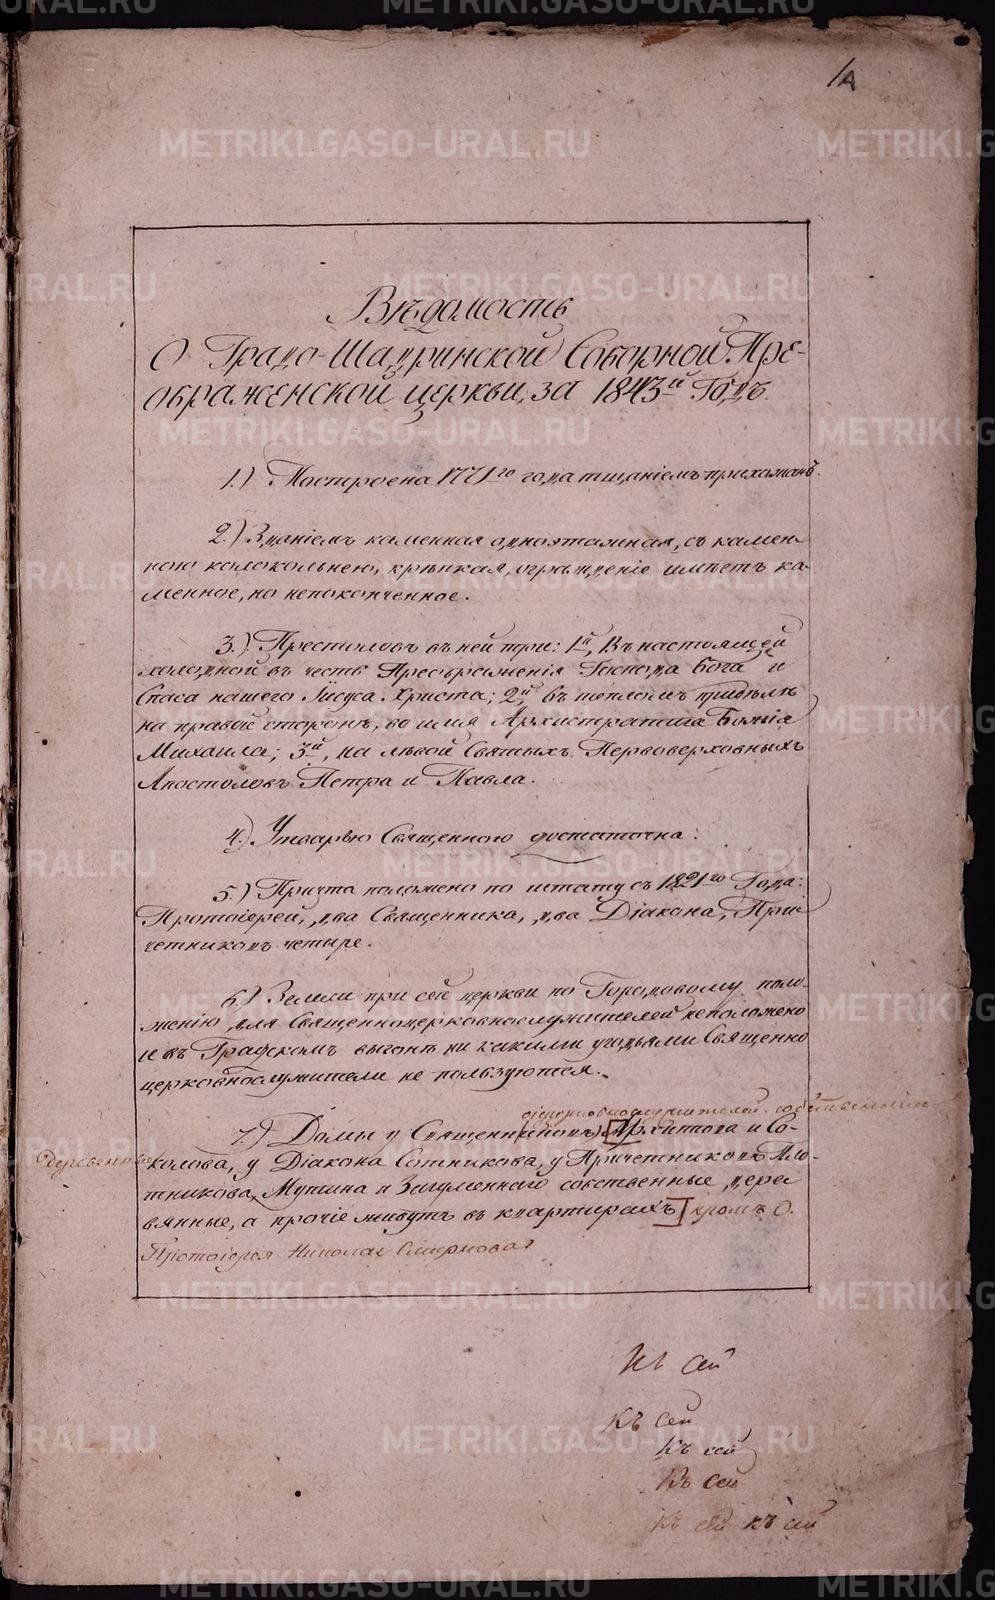 1А
Вѣдомость
О Градо-Шадринской Соборной Пре-
ображенской церкви, за 1843й Годъ.
1.) Построена 1771го года тщаніемъ прихожанъ.
2.) Зданіемъ каменная одноэтажная, съ камен-
ною колокольнею, крѣпкая, огражденіе имѣетъ ка-
менное, но неоконченное.
3.) Престоловъ въ ней три: 1й, Въ настоящей
холодной въ честь Преображенія Господа Бога и
Спаса нашего Іисуса Христа; 2й, въ тепломъ придѣлѣ
на правой сторонѣ, во имя Архистратига Божія
Михаила; 3й, на лѣвой Святыхъ Первоверховныхъ
Апостоловъ Петра и Павла.
4.) Утварью Священною достаточна.
5.) Причта положено по штату съ 1821го Года:
Протоіерей, два Священника, два Діакона, При-
четниковъ четыре.
6.) Земли при сей церкви по Городовому поло-
женію для Священноцерковнослужителей неположено
и въ Градскомъ выгонѣ ни какими угодьями Священно
церковнослужители не пользуются.
оіцерковнослужителей собственные
7.) Домы у Священниковъ Архипова и Со-
деревянные
колова, у Діакона Сотникова, у Причетниковъ Пло-
тникова, Мутина и Загуменнаго собственные дере
вянные, а прочіе живутъ въ квартирахъ кромѣ О.
Протоіерея Николая Смирнова
Къ сей
Къ сей
Къ сей
Къ сей
Къ сей къ сей
METRIKI.GASO-URAL.RU